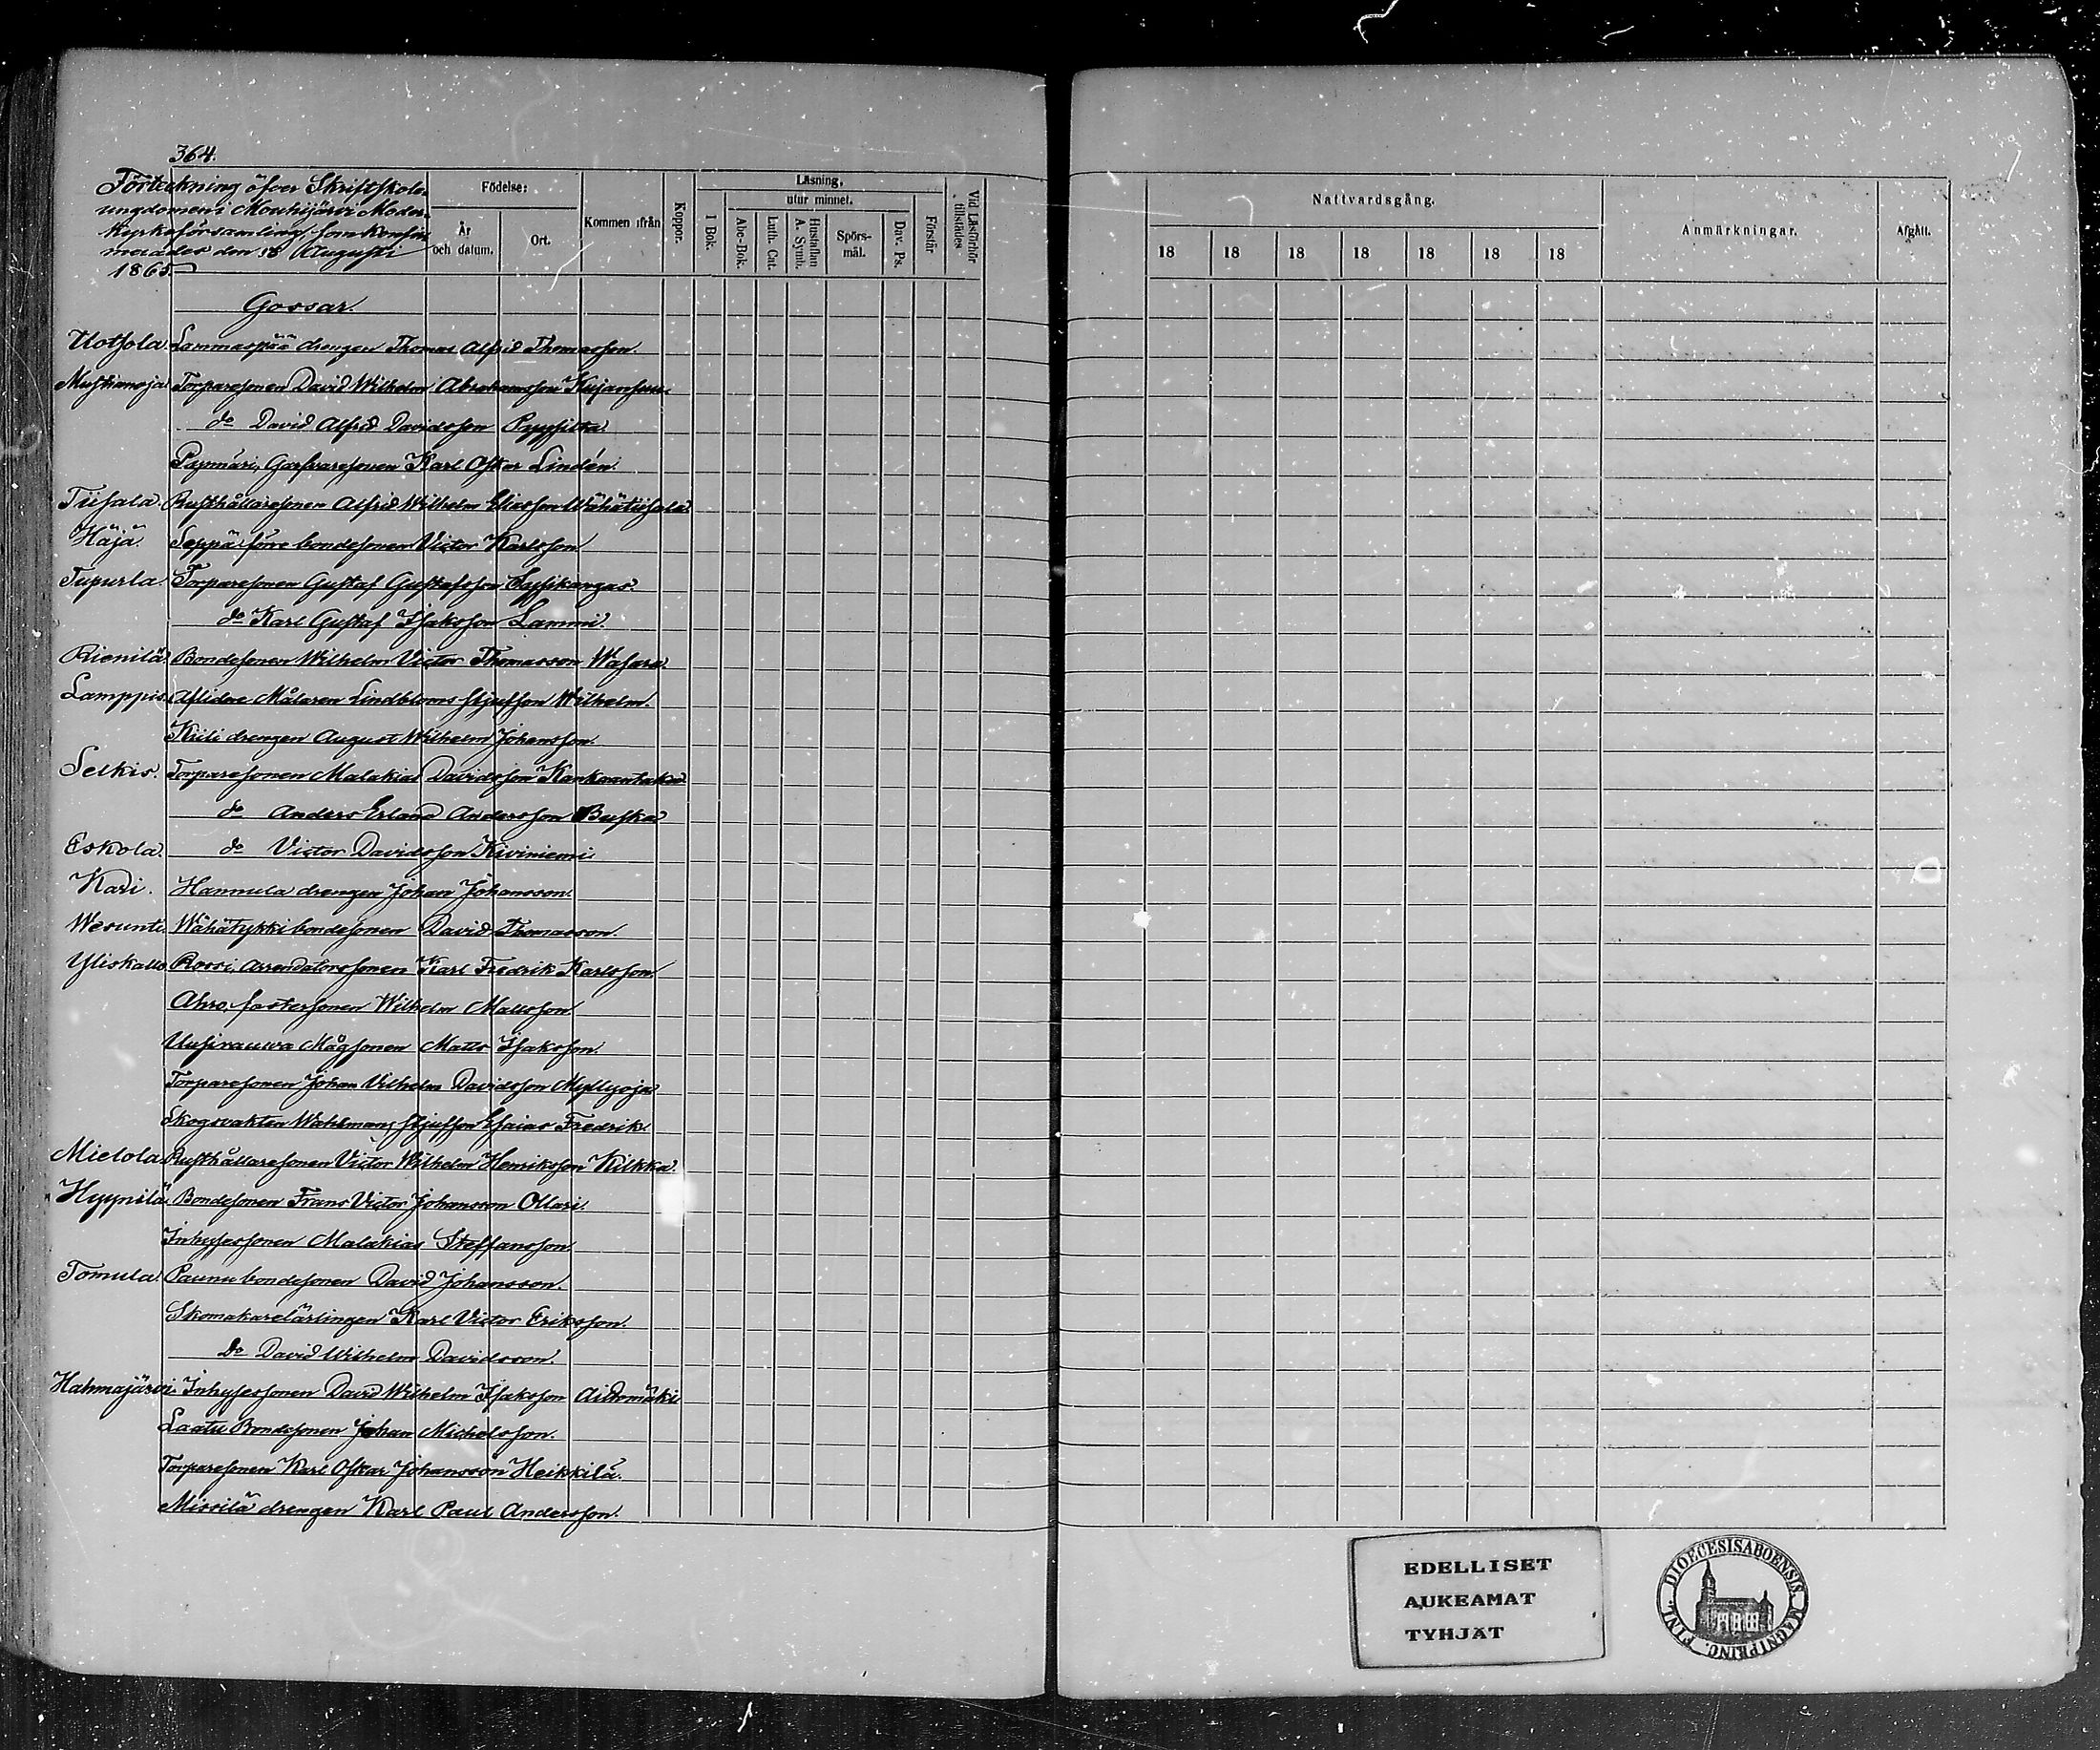 364.
Förteckning öfver Skriftskole-
ungdomen i Mouhijärvi Moder-
kyrkoförsamling, som konfir-
merades den 18 Augusti
1865.
Födelse:
År och datum.
Ort.
Kommen ifrån
Koppor.
Läsning,
utur minnet.
I Bok.
Abc-Bok.
Luth. Cat.
Hustaflan A. Symb.
Spörs-mål.
Dav. Ps.
Förstår
Vid Läsförhör tillstädes
Nattvardsgång.
18 18 18 18 18 18 18
Anmärkningar.
Afgått.
Gossar.
Uotsola. Lammaspää drengen Thomas Alfrid Thomasson.
Mustianoja Torparesonen David Wilhelm Abrahamsson Kujansuu.
do David Alfrid Davidsson Pyysilta.
Garfvaresonen Karl Oskar Lindén.
Tiisala. Rusthållaresonen Alfrid Wilhelm Eliasson Wähätiisala.
Häjä. Seppä, förre bondesonen Victor Karlsson
Tupurla. Torparesonen Gustaf Gustafsson Syssikangas.
do Karl Gustaf Isaksson Lammi.
Rienilä. Bondesonen Wilhelm Victor Thomasson Wasara.
Lamppis. Aflidne Målaren Lindbloms styfson Wilhelm.
Kiili drengen August Wilhelm Johansson.
Selkis. Torparesonen Malakias Davidsson Kankaantaka
do Anders Erland Andersson Buska
Eskola. do Victor Davidsson Kiviniemi
Kari. Hannula drengen Johan Johansson.
Wesunti. Wähätykki bondesonen David Thomasson.
Yliskallo Rossi, Arrendatorssonen Karl Fredrik Karlsson.
Ahro, fostersonen Wilhelm Mattsson
Uusirauva Mågsonen Matts Isaksson.
Torparesonen Johan Vilhelm Davidsson Myllyoja
Skogsvakten Wahlmans styfson Esaias Fredrik.
Mielola Rusthållaresonen Victor Wilhelm Henriksson Kilkka.
Hyynilä Bondesonen Frans Victor Johansson Ollari.
Inhysessonen Malakias Steffansson.
Tomula. Paunu bondesonen David Johansson.
Skomakarelärlingen Karl Victor Eriksson.
do David Wilhelm Davidsson.
Hahmajärvi. Inhysessonen David Wilhelm Isaksson Aidomäki
Laatu Bondesonen Johan Michelsson.
Torparesonen Karl Oskar Johansson Heikkilä.
Missilä drengen Karl Paul Andersson.
EDELLISET
AUKEAMAT
TYHJÄT
DIOECESIS ABOENSIS MAGNI PRINC. FINL.